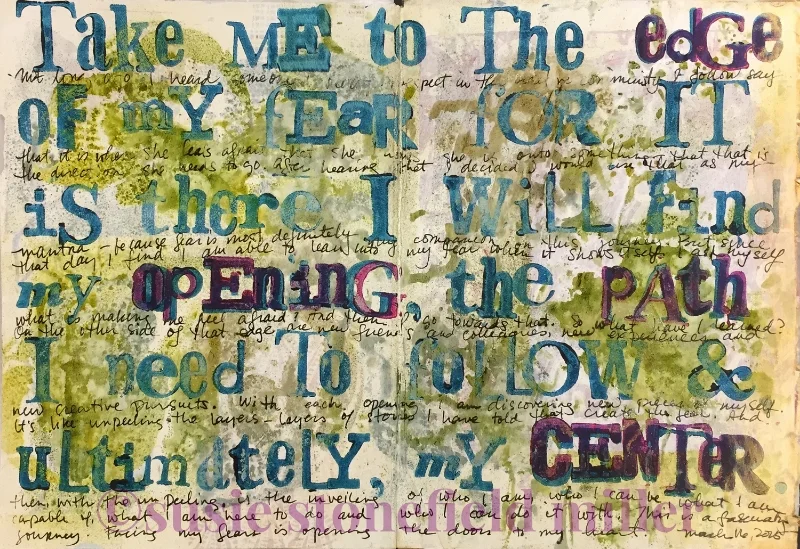 Take ME to The edGe
not long ago I heard someone I in the community I follow say
OF mY fEaR fOR IT
that it is when she feels afraid that she she is onto something & that that is
the direction she needs to go. after hearing that I decided I would use that as my
iS there I WiLL find
mantra - because fear is most definitely my companion on this journey. but since
that day, I find I am able to lean into my fear. when it shows itself I ask myself
my opEninG, the pAth
what is making me feel afraid? And then I go towards that. So what have I learned?
On the other side of that edge are new friends and colleagues, new experiences and
I need To follOW &
new creative pursuits. With each opening I am discovering new pieces of myself.
It's like unpeeling the layers - layers of stories I have told that create this fear. And
ultimatelY, mY CENTeR.
then with the unpeeling is the unveiling of who I am, who I can be, what I am
capable of, what I am here to do and who I can do it with. This is a fascinating
journey. Facing my fears is opening the doors to my heart. march 16 2015
©susie stonefield miller